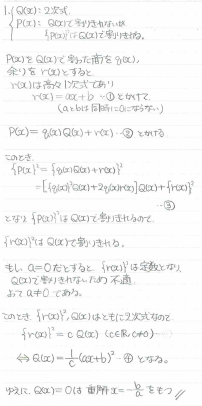 1. { Q(x): 2次式.
P(x): Q(x)で割りきれないが
{P(x)}²はQ(x)で割りきれる。
P(x)を Q(x)で割った商を g(x),
余りを r(x)とすると
r(x)は高々1次式であり
r(x) = ax+b ―① とかけて
(aとbは同時に0にならない)
P(x) = g(x)Q(x) + r(x) ―② とかける
このとき
{P(x)}² = {g(x)Q(x)+r(x)}²
= [{g(x)}²Q(x)+2g(x)r(x)]Q(x) + {r(x)}²
―③
となり {P(x)}²は Q(x)で割りきれるので
{r(x)}²は Q(x)で割りきれる。
もし a=0だとすると {r(x)}²は定数となり
Q(x)で割りきれないため 不適
よって a≠0 である。
このとき {r(x)}², Q(x)はともに2次式なので
{r(x)}² = c Q(x) (c∈R, c≠0)
⇔ Q(x) = 1/c (ax+b)² ―④ となる。
ゆえに Q(x)=0は 重解 x=-b/a をもつ //